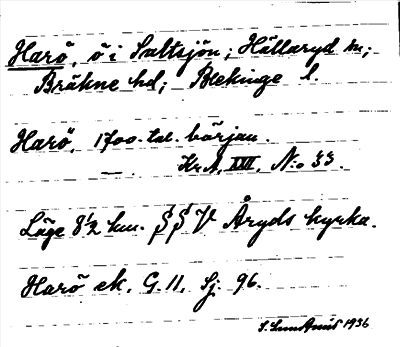 Harö, ö i Saltsjön; Hällaryd sn;
Bräkne hd; Blekinge l.
Harö, 1700-tal. början.
— . Kr. A, XXII, No 33.
Läge 8½ km. SSV Åryds kyrka.
Harö ek. G. 11, Sj. 96.
1936